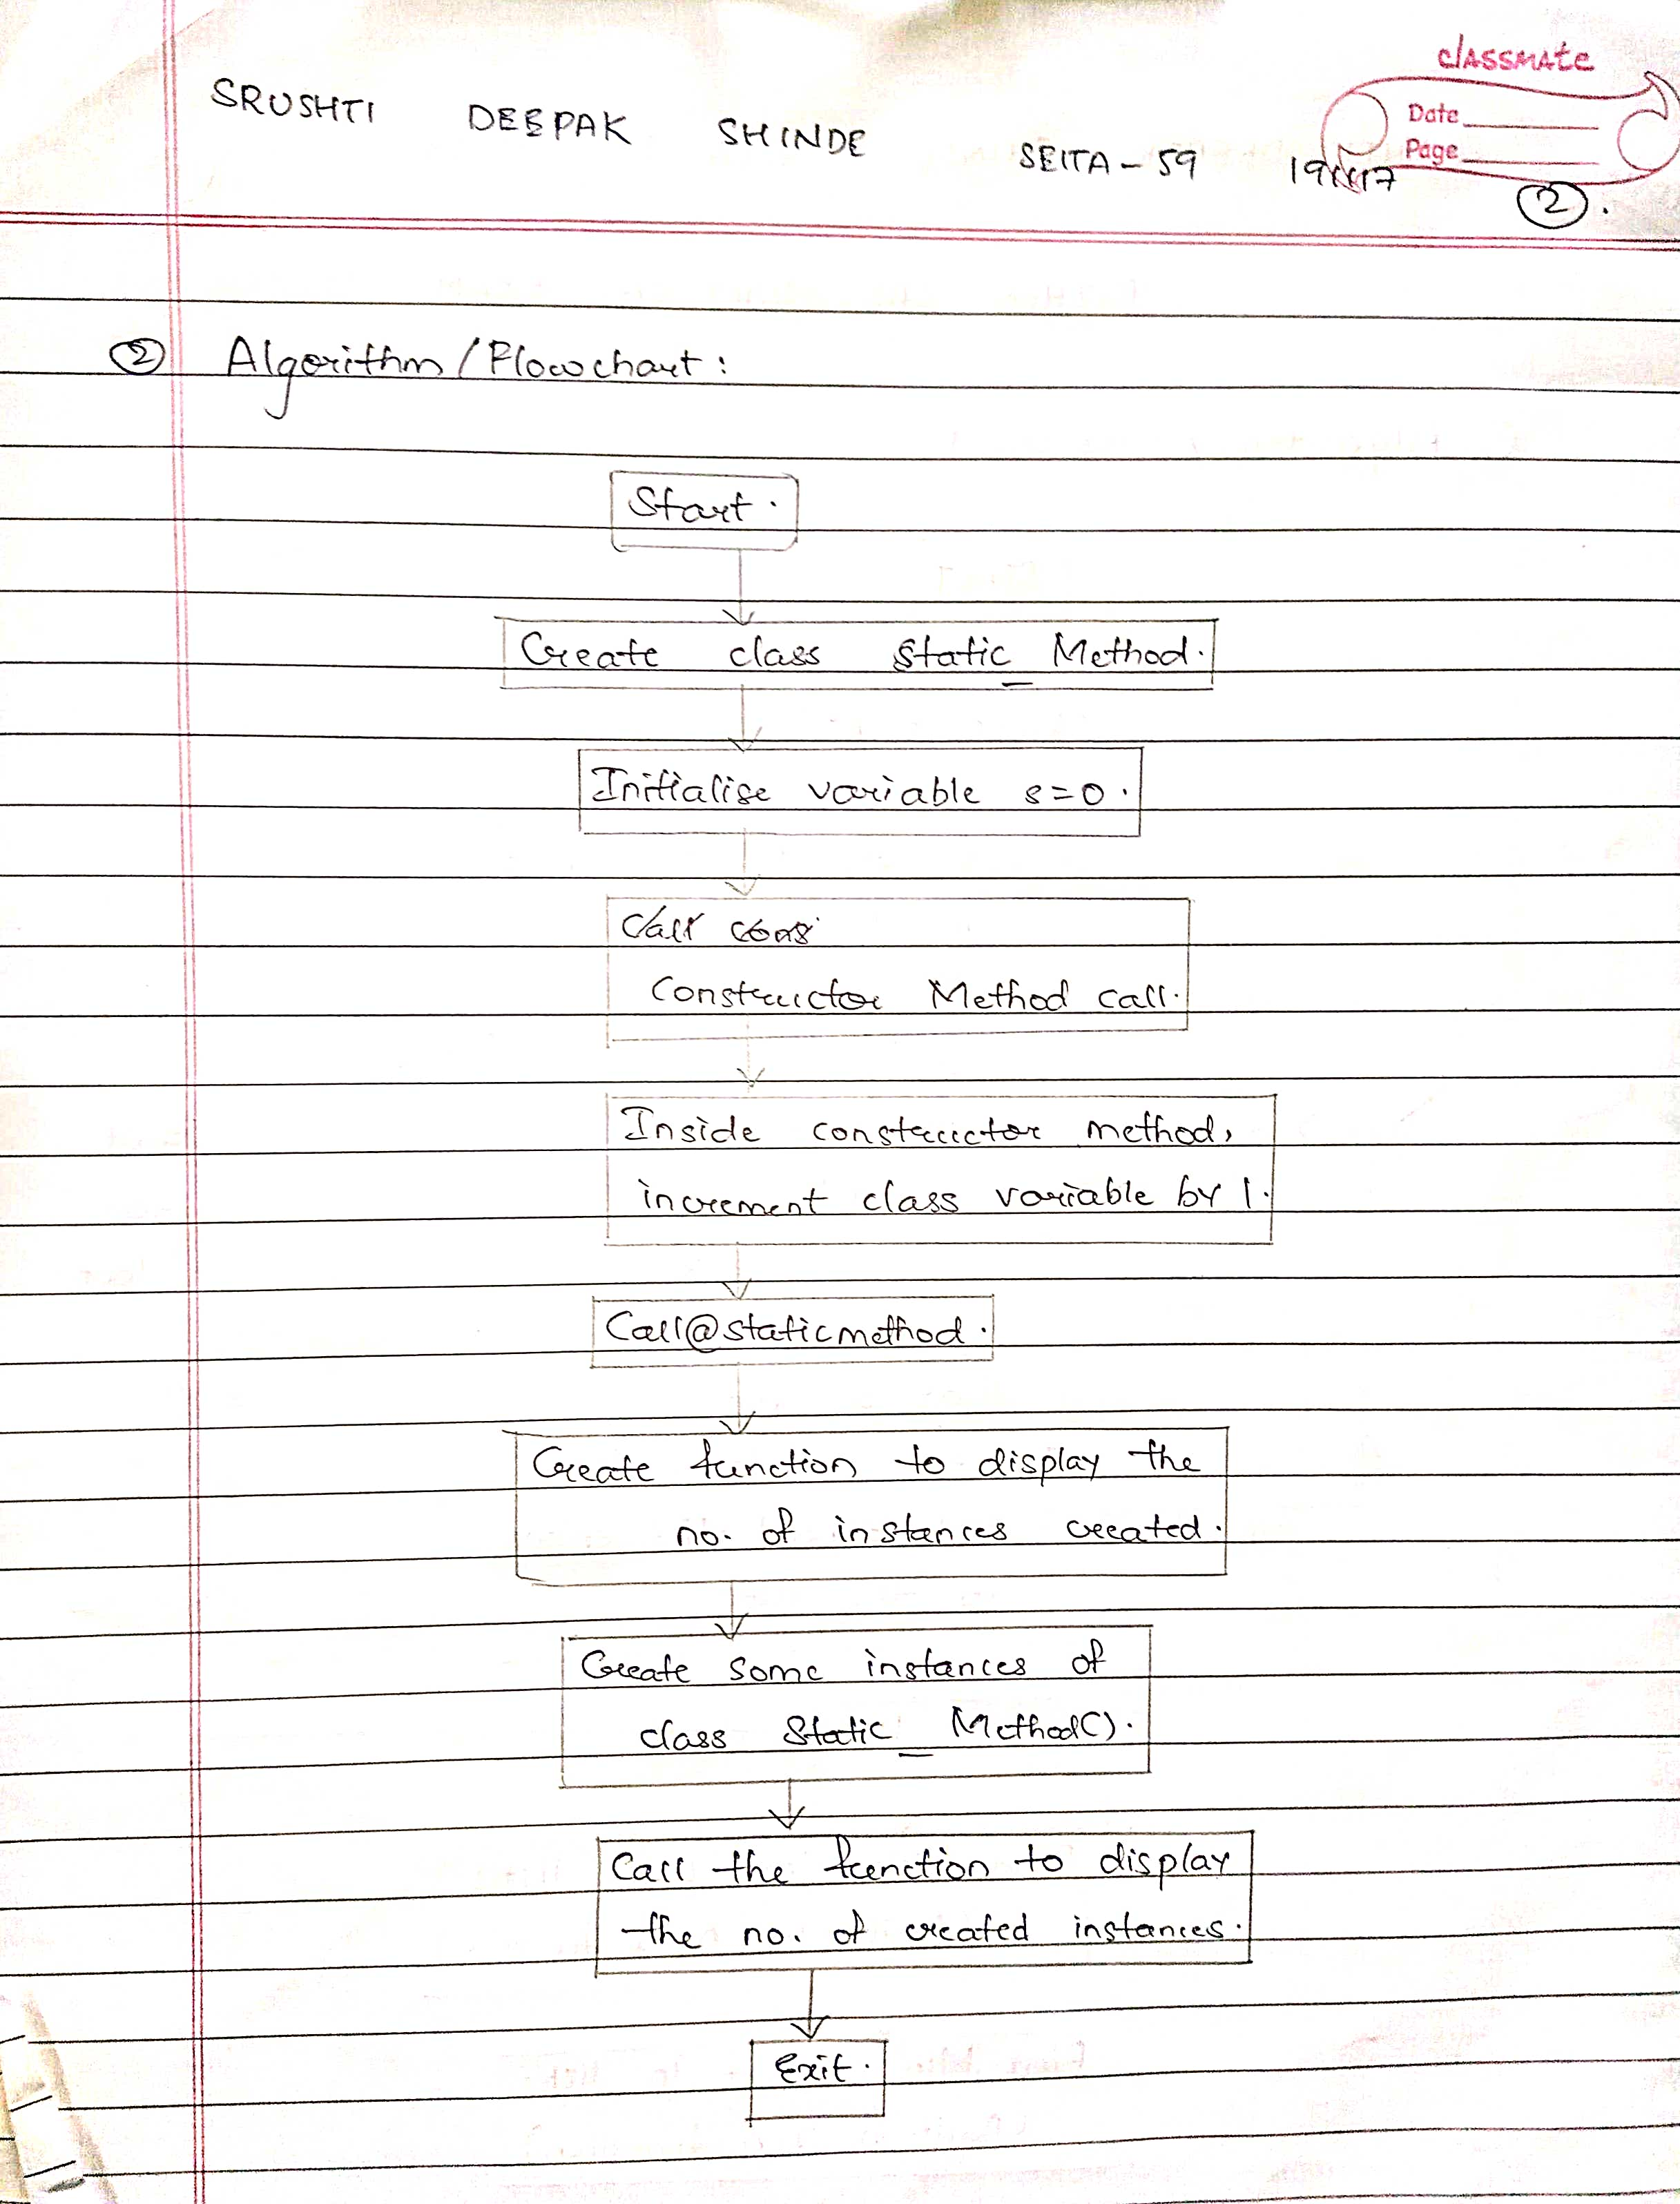 classmate
Date
Page
SRUSHTI DEEPAK SHINDE SEITA - 59
2.
2 Algorithm / Flowchart :
Start.
Create class Static_Method.
Initialise variable s=0.
Call cons
Constructor Method call.
Inside constructor method,
increment class variable by 1.
Call@staticmethod.
Create function to display the
no. of instances created.
Create some instances of
class Static_Method().
Call the function to display
the no. of created instances.
Exit.